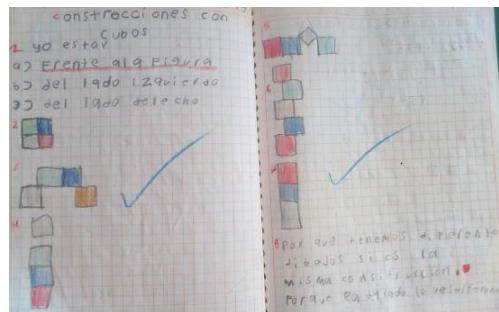 construcciones con
cubos
1 yo estoy
a) Frente a la Figura
b) del lado izquierdo
c) del lado derecho
2
3
4
5
6
7
8 Por qué tenemos diferente
dibujos si es la
misma construcción.
Porque
lado lo